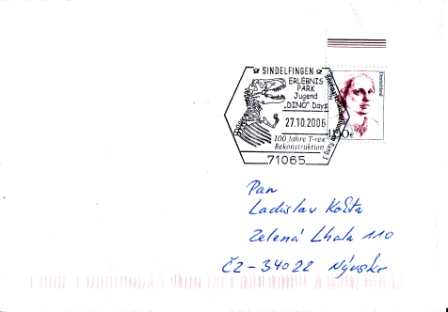 SINDELFINGEN
ERLEBNIS
PARK
Jugend
„DINO" Days
27.10.2006
100 Jahre T-rex
Rekonstruktion
71065
Deutschland
Pan
Ladislav Košta
Zelená Lhota 110
CZ-34022 Nýrsko